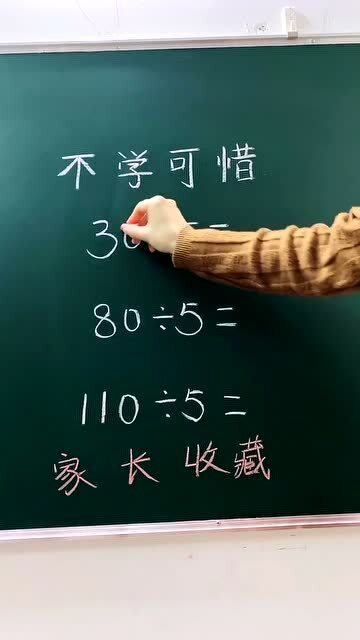 不学可惜
30 =
80÷5=
110÷5=
家长收藏